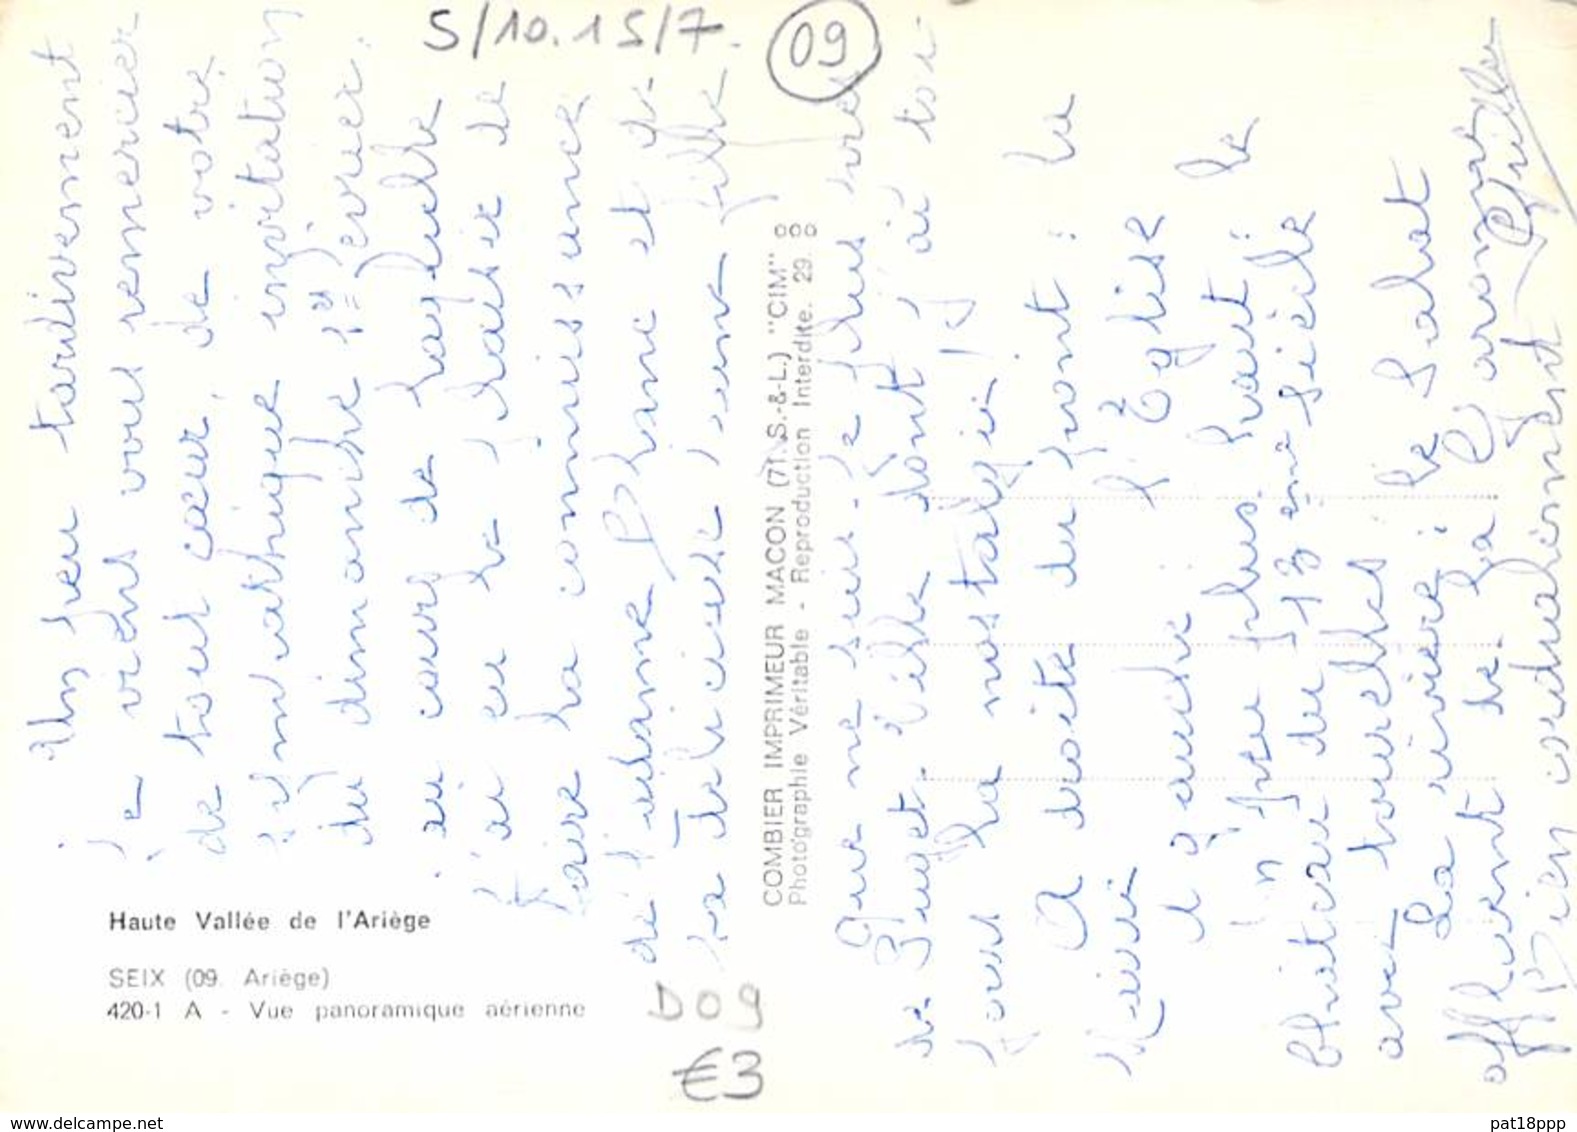 S/10.15/7.
09
Un peu tardivement
je viens vous remercier
de tout cœur, de votre
sympathique invitation
du dimanche 1er février.
au cours de laquelle
j'ai eu le plaisir de
faire la connaissance
de Madame Blanc et de
sa délicieuse jeune fille
COMBIER IMPRIMEUR MACON (71. S.-&-L.) "CIM"
Photographie Véritable - Reproduction Interdite. 29.
Que ne suis-je plus près
de Puget. Ville dont j'ai
pour la nostalgie!
A droite du pont : la
Mairie
A gauche : l'Eglise
Un peu plus haut : le
Château du 13ème siècle
avec tourelles
La rivière : le Salat
affluent de la Garonne
Bien cordialement
Haute Vallée de l'Ariège
SEIX (09. Ariège)
420-1 A - Vue panoramique aérienne
D09
€3
www.delcampe.net
pat18ppp